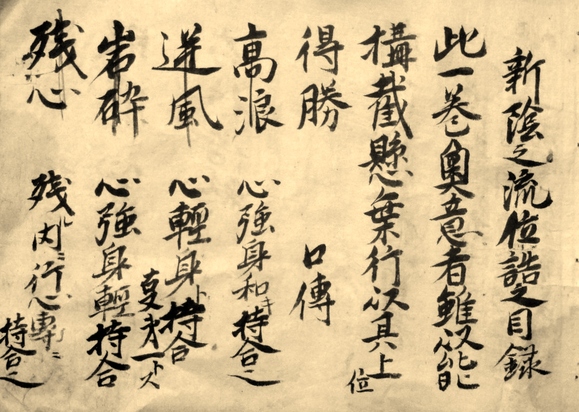 新陰之流位詰之目録
此一巻奥意者雖以能
構截懸棄行以具上位
得勝 口傳
高浪 心強身和キ持合之
逆風 心輕身ト持合
岩砕 心強身輕持合
残心 残ル内ニ行心専ニ持合之